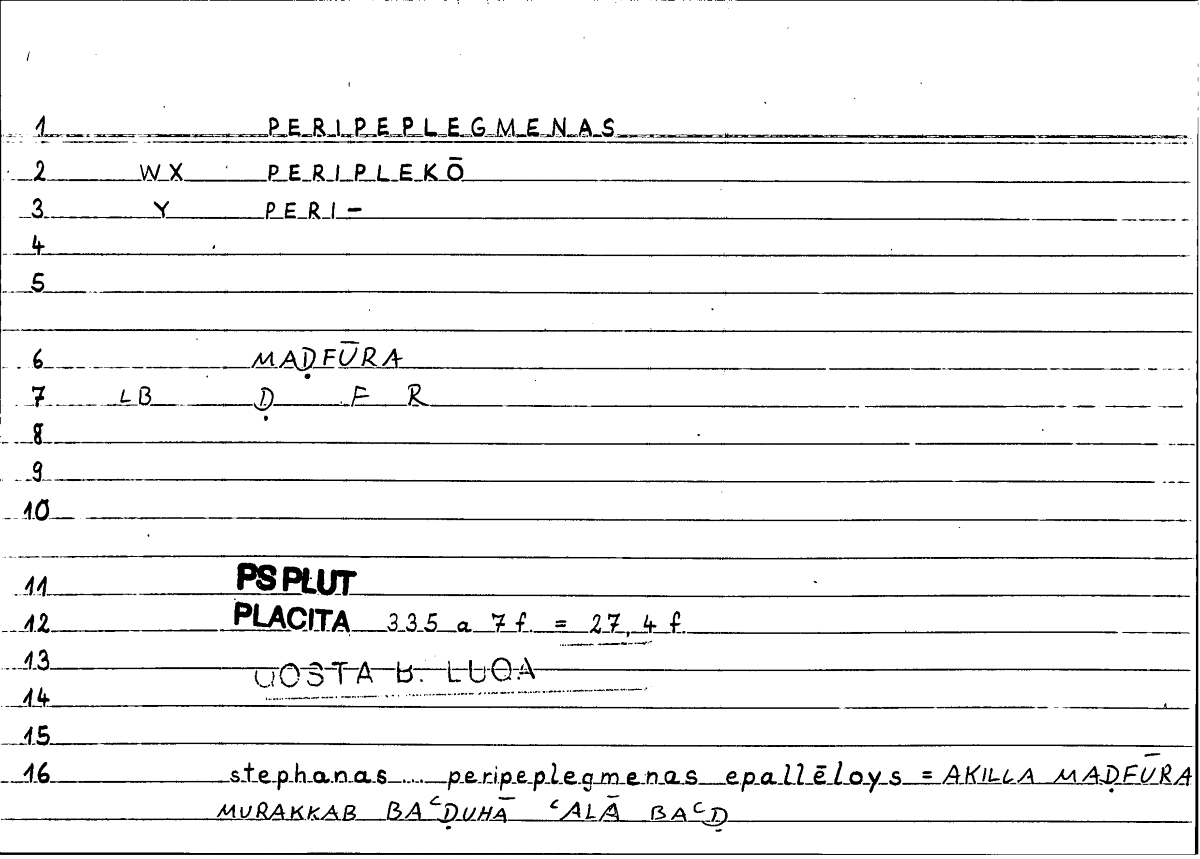 1 PERIPEPLEGMENAS
2 WX PERIPLEKŌ
3 Y PERI-
4
5
6 MAḌFŪRA
7 LB Ḍ F R
8
9
10
11 PS PLUT
12 PLACITA 335 a 7 f. = 27,4 f.
13 QOSTA B. LUQA
14
15
16 stephanas ... peripeplegmenas epallēloys = AKILLA MAḌFŪRA
MURAKKAB BAʿḌUHĀ ʿALĀ BAʿḌ